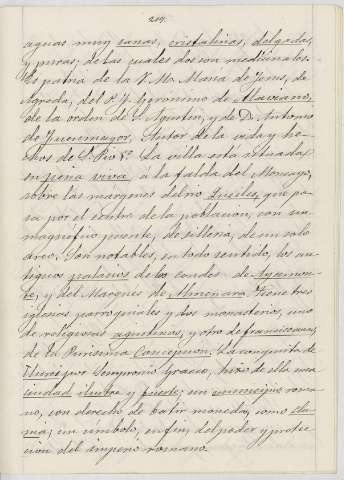 219.
aguas muy sanas, cristalinas, delgadas,
y puras; de las cuales dos son medicinales.
Es patria de la V. M. Maria de Jesus, de
Agreda, del P. F. Geronimo de
de la orden de S. Agustin, y de D. Antonio
de Fuenmayor, Autor de la vida y he-
chos de S. Pio 5º. La villa está situada
en peña viva, á la falda del Moncayo,
sobre las margenes del rio Queiles, que pa-
sa por el centro de la poblacion, con un
magnifico puente, de silleria, de un solo
arco. Son notables, en todo sentido, los an-
tiguos palacios de los condes de Ayamon-
te, y del Marqués de Almenara. Tiene tres
iglesias parroquiales y dos monasterios, uno
de religiosas agustinas, y otro de franciscanas,
de la Purisima Concepcion. La conquista de
por Sempronio Graco, hizo de ella una
ciudad ilustre y fuerte; un municipio roma-
no, con derecho de batir moneda, como
; un simbolo, en fin, del poder y protec-
cion del imperio romano.